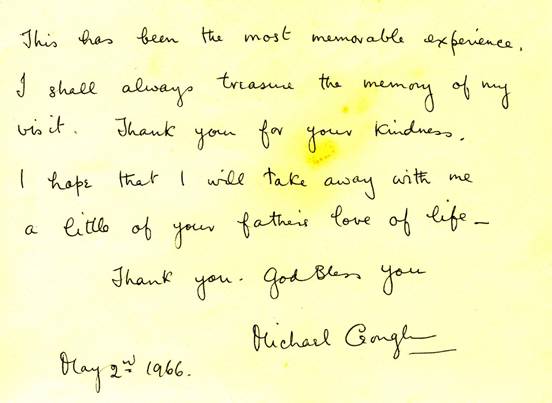 This has been the most memorable experience.
I shall always treasure the memory of my
visit. Thank you for your kindness.
I hope that I will take away with me
a little of your father's love of life –
Thank you. God Bless you
Michael Gough
May 2nd 1966.